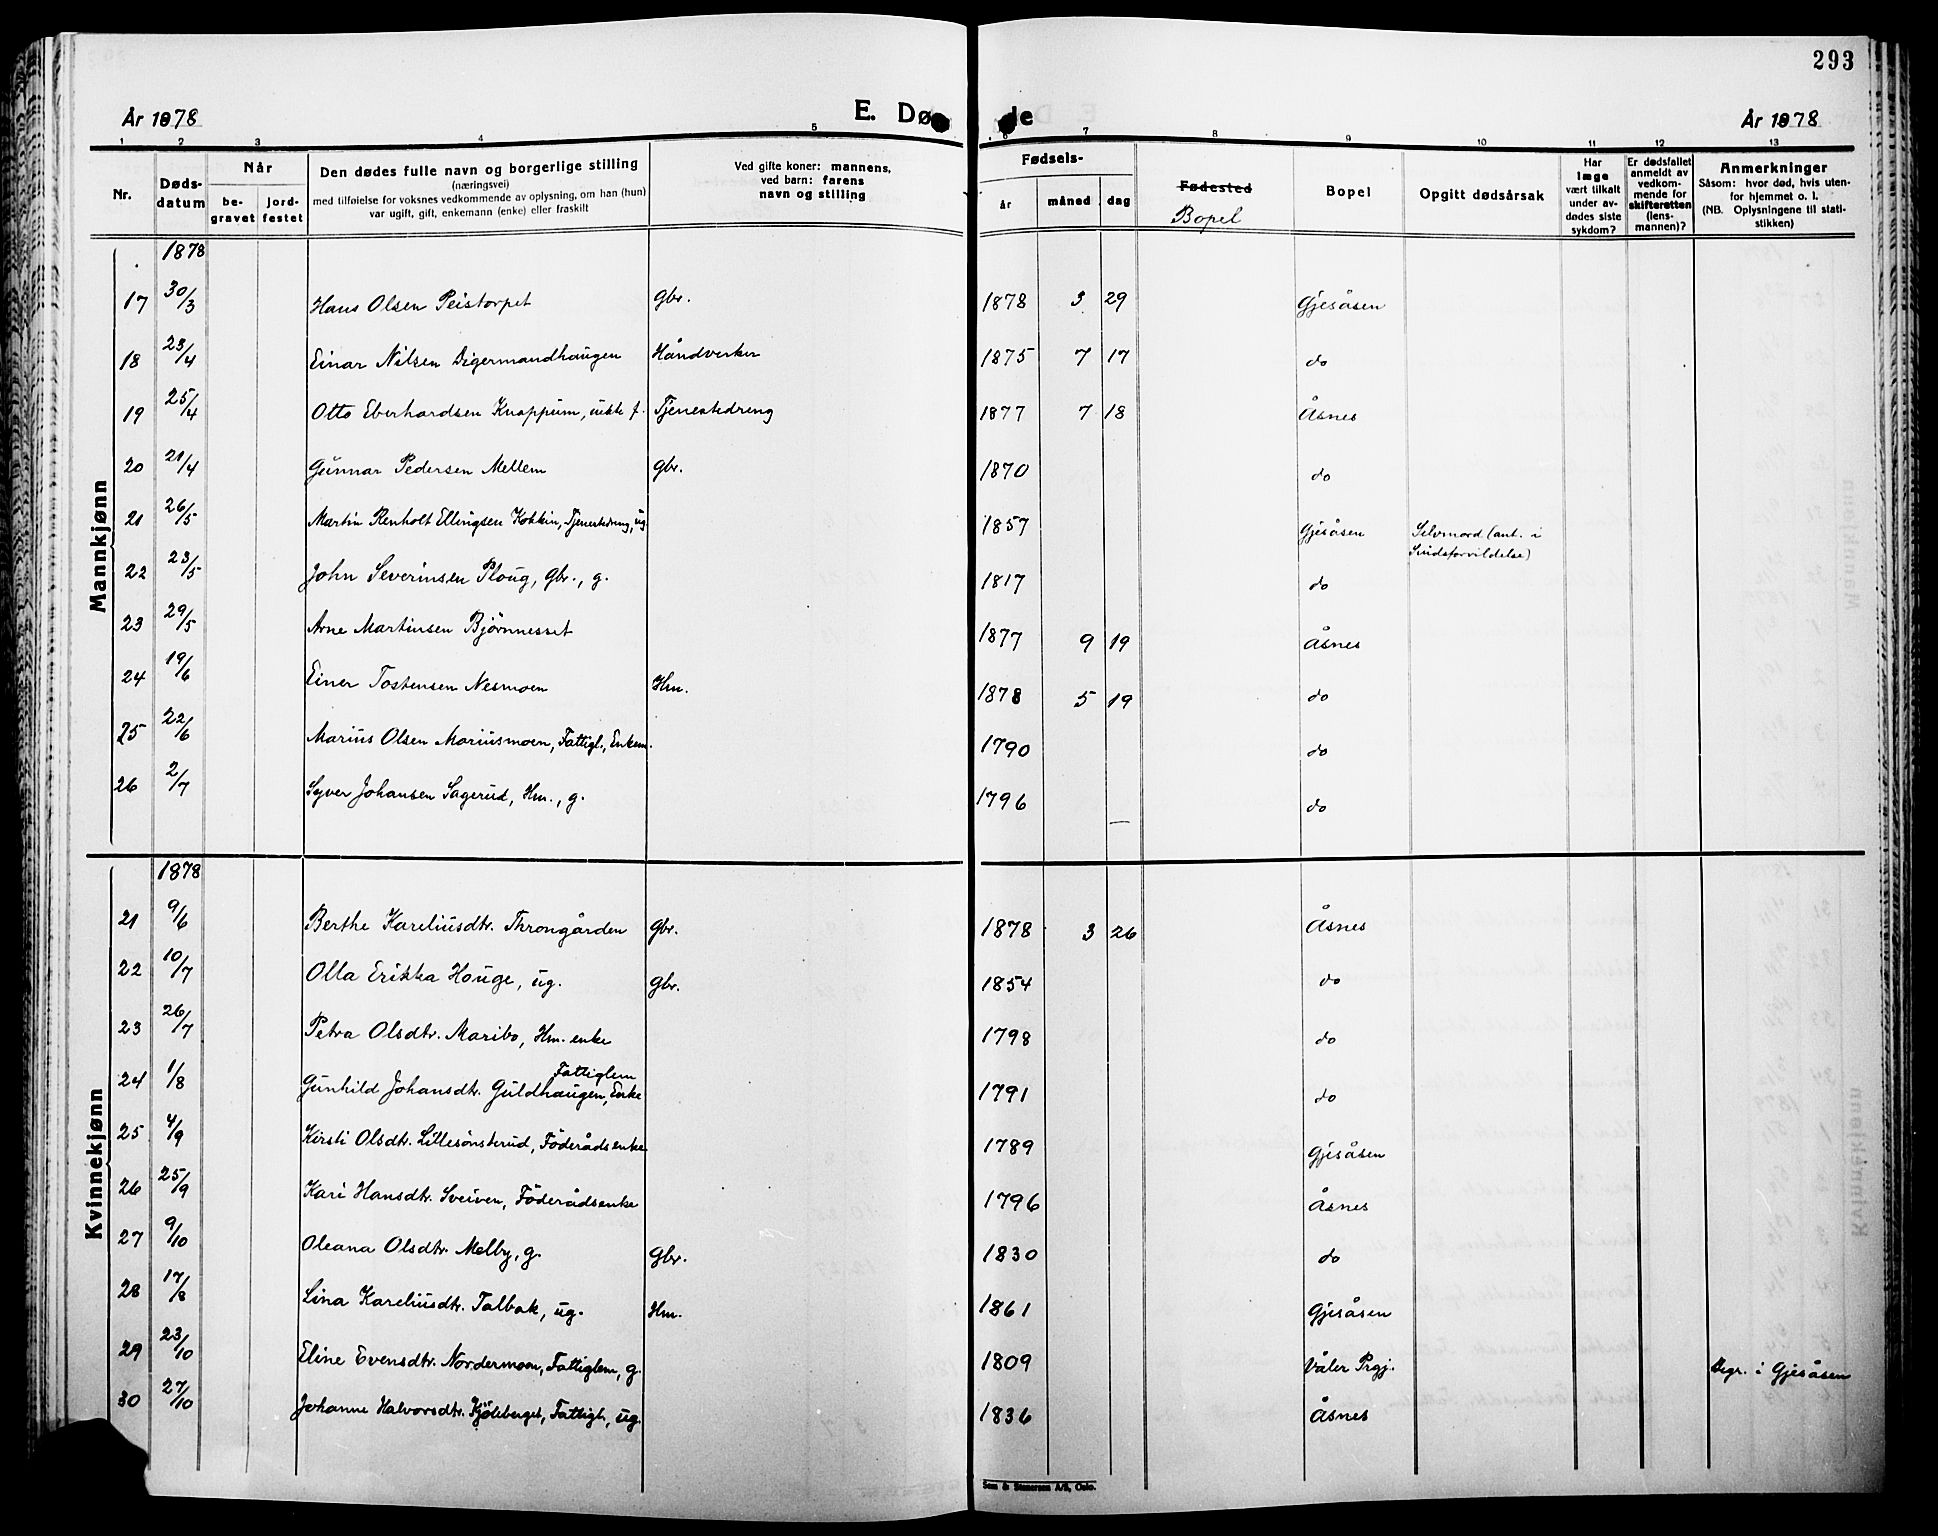 293
År 1878
E. Dø de
År 1878
1 2 3 4 5 6 7 8 9 10 11 12 13
Nr.
Døds-
datum
Når
be-
gravet
jord-
festet
Den dødes fulle navn og borgerlige stilling
(næringsvei)
med tilføielse for voksnes vedkommende av oplysning, om han (hun)
var ugift, gift, enkemann (enke) eller fraskilt
Ved gifte koner: mannens,
ved barn: farens
navn og stilling
Fødsels-
år måned dag
Fødested
Bopel
Bopel
Opgitt dødsårsak
Har
læge
vært tilkalt
under av-
dødes siste
sykdom?
Er dødsfallet
anmeldt av
vedkom-
mende for
skifteretten
(lens-
mannen)?
Anmerkninger
Såsom: hvor død, hvis uten-
for hjemmet o. l.
(NB. Oplysningene til stati-
stikken)
Mannkjønn
1878
17 30/3 Hans Olsen Peistorpet gbr. 1878 3 29 Gjesåsen
18 23/4 Einar Nilsen Digermandhaugen Håndverker 1875 7 17 do
19 25/4 Otto Eberhardsen Knappum, uekte f. Tjenestedreng 1877 7 18 Åsnes
20 21/4 Gunnar Pedersen Mellem gbr. 1870 do
21 26/5 Martin Renholt Ellingsen Kokkin, Tjenestedreng, ug. 1857 Gjesåsen Selvmord (ant. i
Sindsforvildelse)
22 23/5 John Severinsen Ploug, Gbr., g. 1817 do
23 29/5 Arne Martinsen Björnnesset 1877 9 19 Åsnes
24 19/6 Einer Tostensen Nesmoen Hm. 1878 5 19 do
25 22/6 Marius Olsen Mariusmoen, Fattigl., Enkem. 1790 do
26 2/7 Syver Johansen Sagerud, Hm., g. 1796 do
Kvinnekjønn
1878
21 9/6 Berthe Kareliusdtr. Throngården Gbr. 1878 3 26 Åsnes
22 10/7 Olla Erikka Houge, ug. Gbr. 1854 do
23 26/7 Petra Olsdtr. Maribo, Hm. enke 1798 do
24 1/8 Gunhild Johansdtr. Guldhaugen, Fattiglem Enke 1791 do
25 4/9 Kirsti Olsdtr. Lillesönsterud, Föderådsenke 1789 Gjesåsen
26 25/9 Kari Hansdtr. Sveiven, Föderådsenke 1796 Åsnes
27 9/10 Oleana Olsdtr. Melby, g. Gbr. 1830 do
28 17/8 Lina Kareliusdtr. Talbak, ug. Hm. 1861 Gjesåsen
29 23/10 Eline Evensdtr. Nordermoen, Fattiglem, g. 1809 Våler Prgj. Begr. i Gjesåsen
30 27/10 Johanne Halvorsdtr. Kjöleberget, Fattigl., ug. 1836 Åsnes
Sem & Stenersen A/S, Oslo.